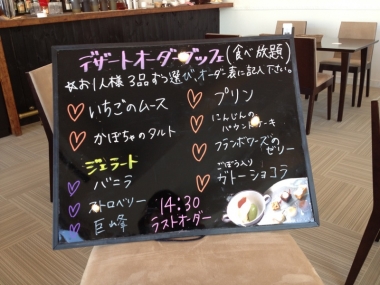 デザートオーダーブッフェ(食べ放題)
☆お1人様3品ずつ選び、オーダー表に記入下さい。
♡いちごのムース
♡かぼちゃのタルト
ジェラート
♡バニラ
♡ストロベリー
♡巨峰
♡プリン
♡にんじんの
パウンドケーキ
♡フランボワーズの
ゼリー
♡ごぼう入り
ガトーショコラ
14:30
ラストオーダー